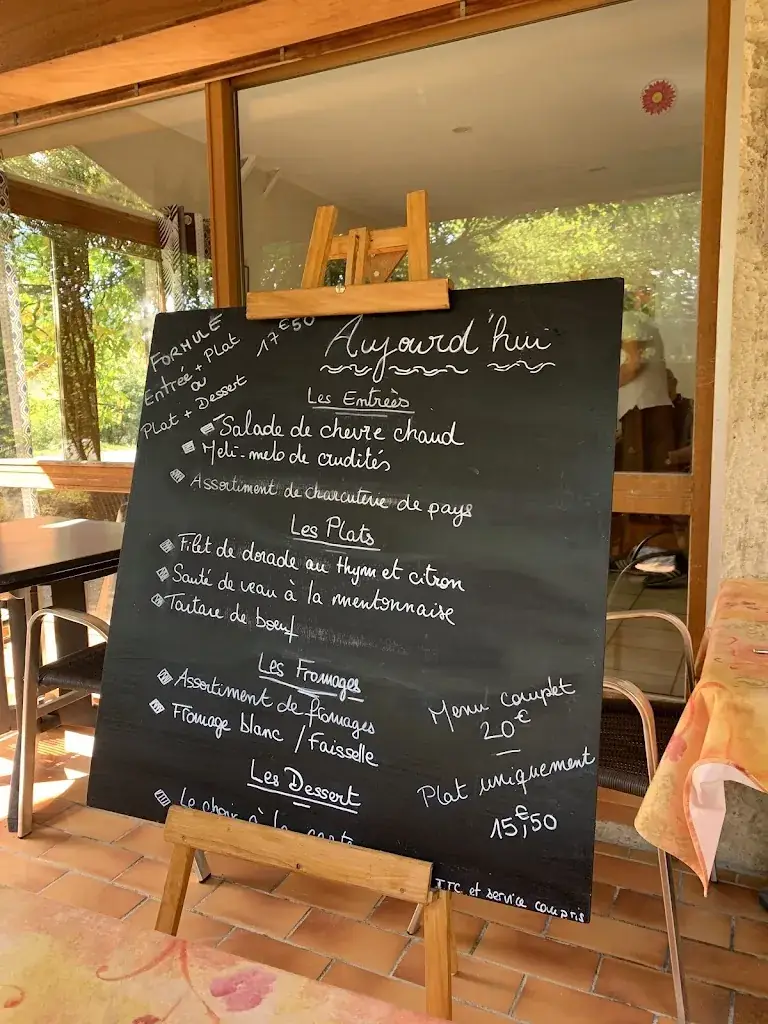 FORMULE 17€50
Entrée + Plat
ou
Plat + Dessert
Aujourd'hui
Les Entrées
Salade de chevre chaud
Meli-melo de crudités
Assortiment de charcuterie de pays
Les Plats
Filet de dorade au thym et citron
Sauté de veau à la mentonnaise
Tartare de boeuf
Les Fromages
Assortiment de fromages
Fromage blanc / Faisselle
Les Dessert
Le choix à la carte
Menu complet
20€
Plat uniquement
15€,50
TTC et service compris